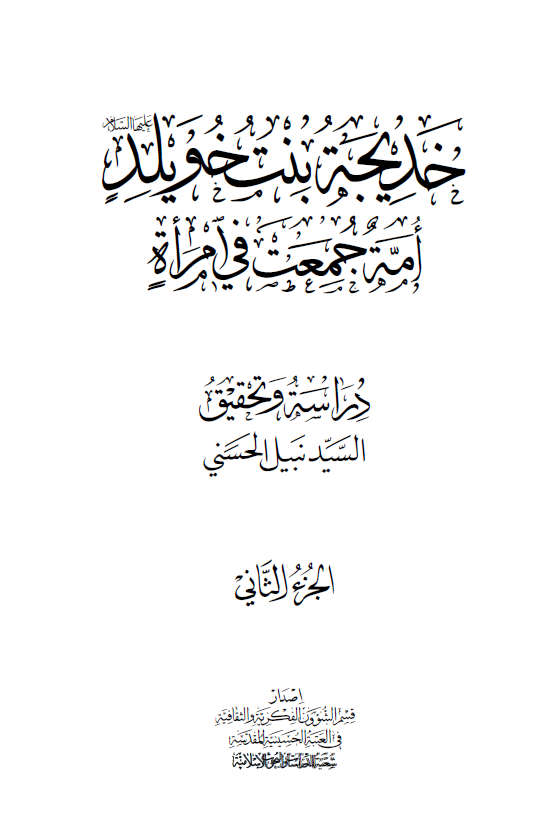 خَدِيجَةُ بِنْتُ خُوَيْلِدٍ عليها السلام
أُمَّةٌ جُمِعَتْ فِي ٱمْرَأَةٍ
دِرَاسَةُ وَتَحْقِيقُ
السَّيِّد نَبِيل الحَسَنِي
الجُزْءُ الثَّانِي
إصدار
قِسْمُ الشُّؤُونِ الفِكْرِيَّةِ وَالثَّقَافِيَّةِ
فِي العَتَبَةِ الحُسَيْنِيَّةِ المُقَدَّسَةِ
شُعْبَةُ الدِّرَاسَاتِ وَالبُحُوثِ الإِسْلَامِيَّةِ